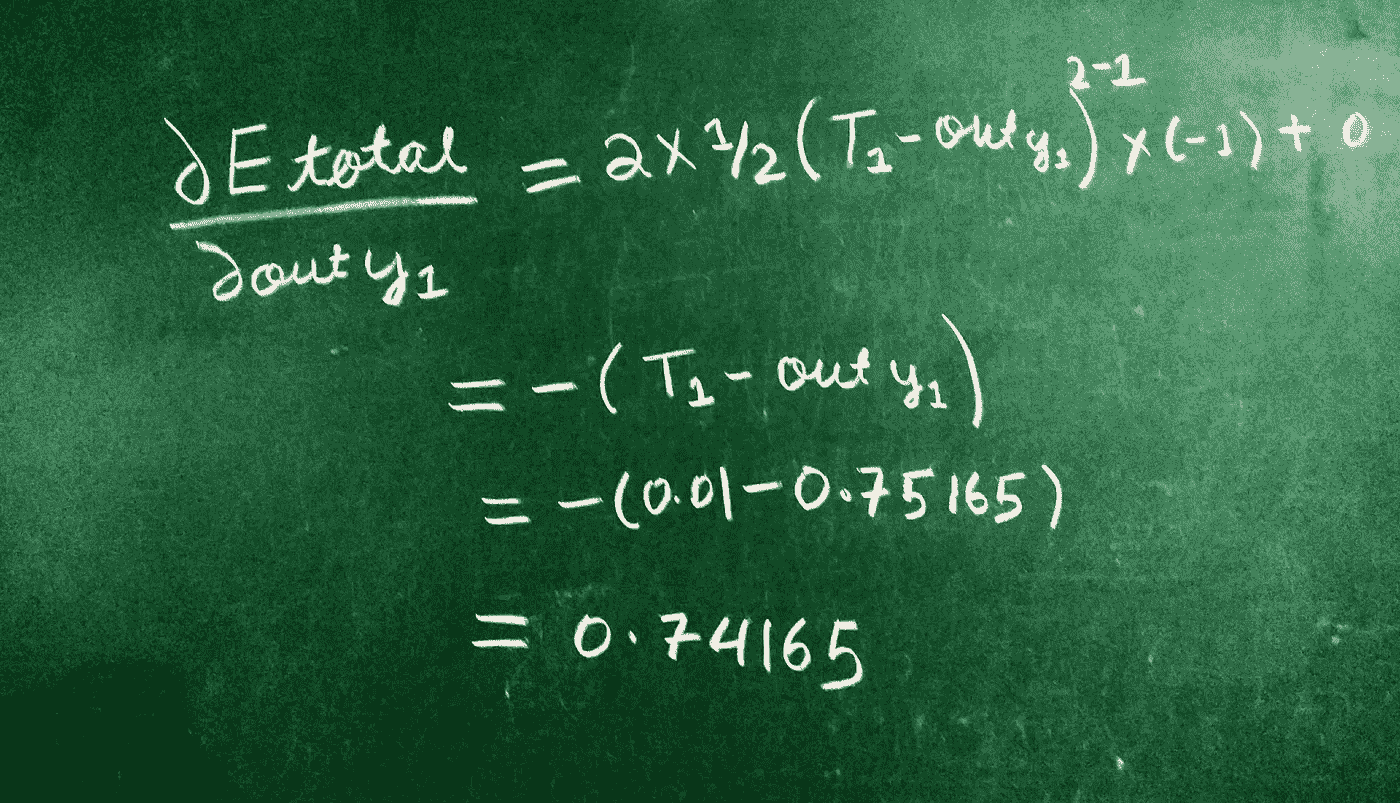 ∂E total / ∂out y₁ = 2 × 1/2 (T₁ - out y₁)²⁻¹ × (-1) + 0
= - (T₁ - out y₁)
= - (0.01 - 0.75165)
= 0.74165